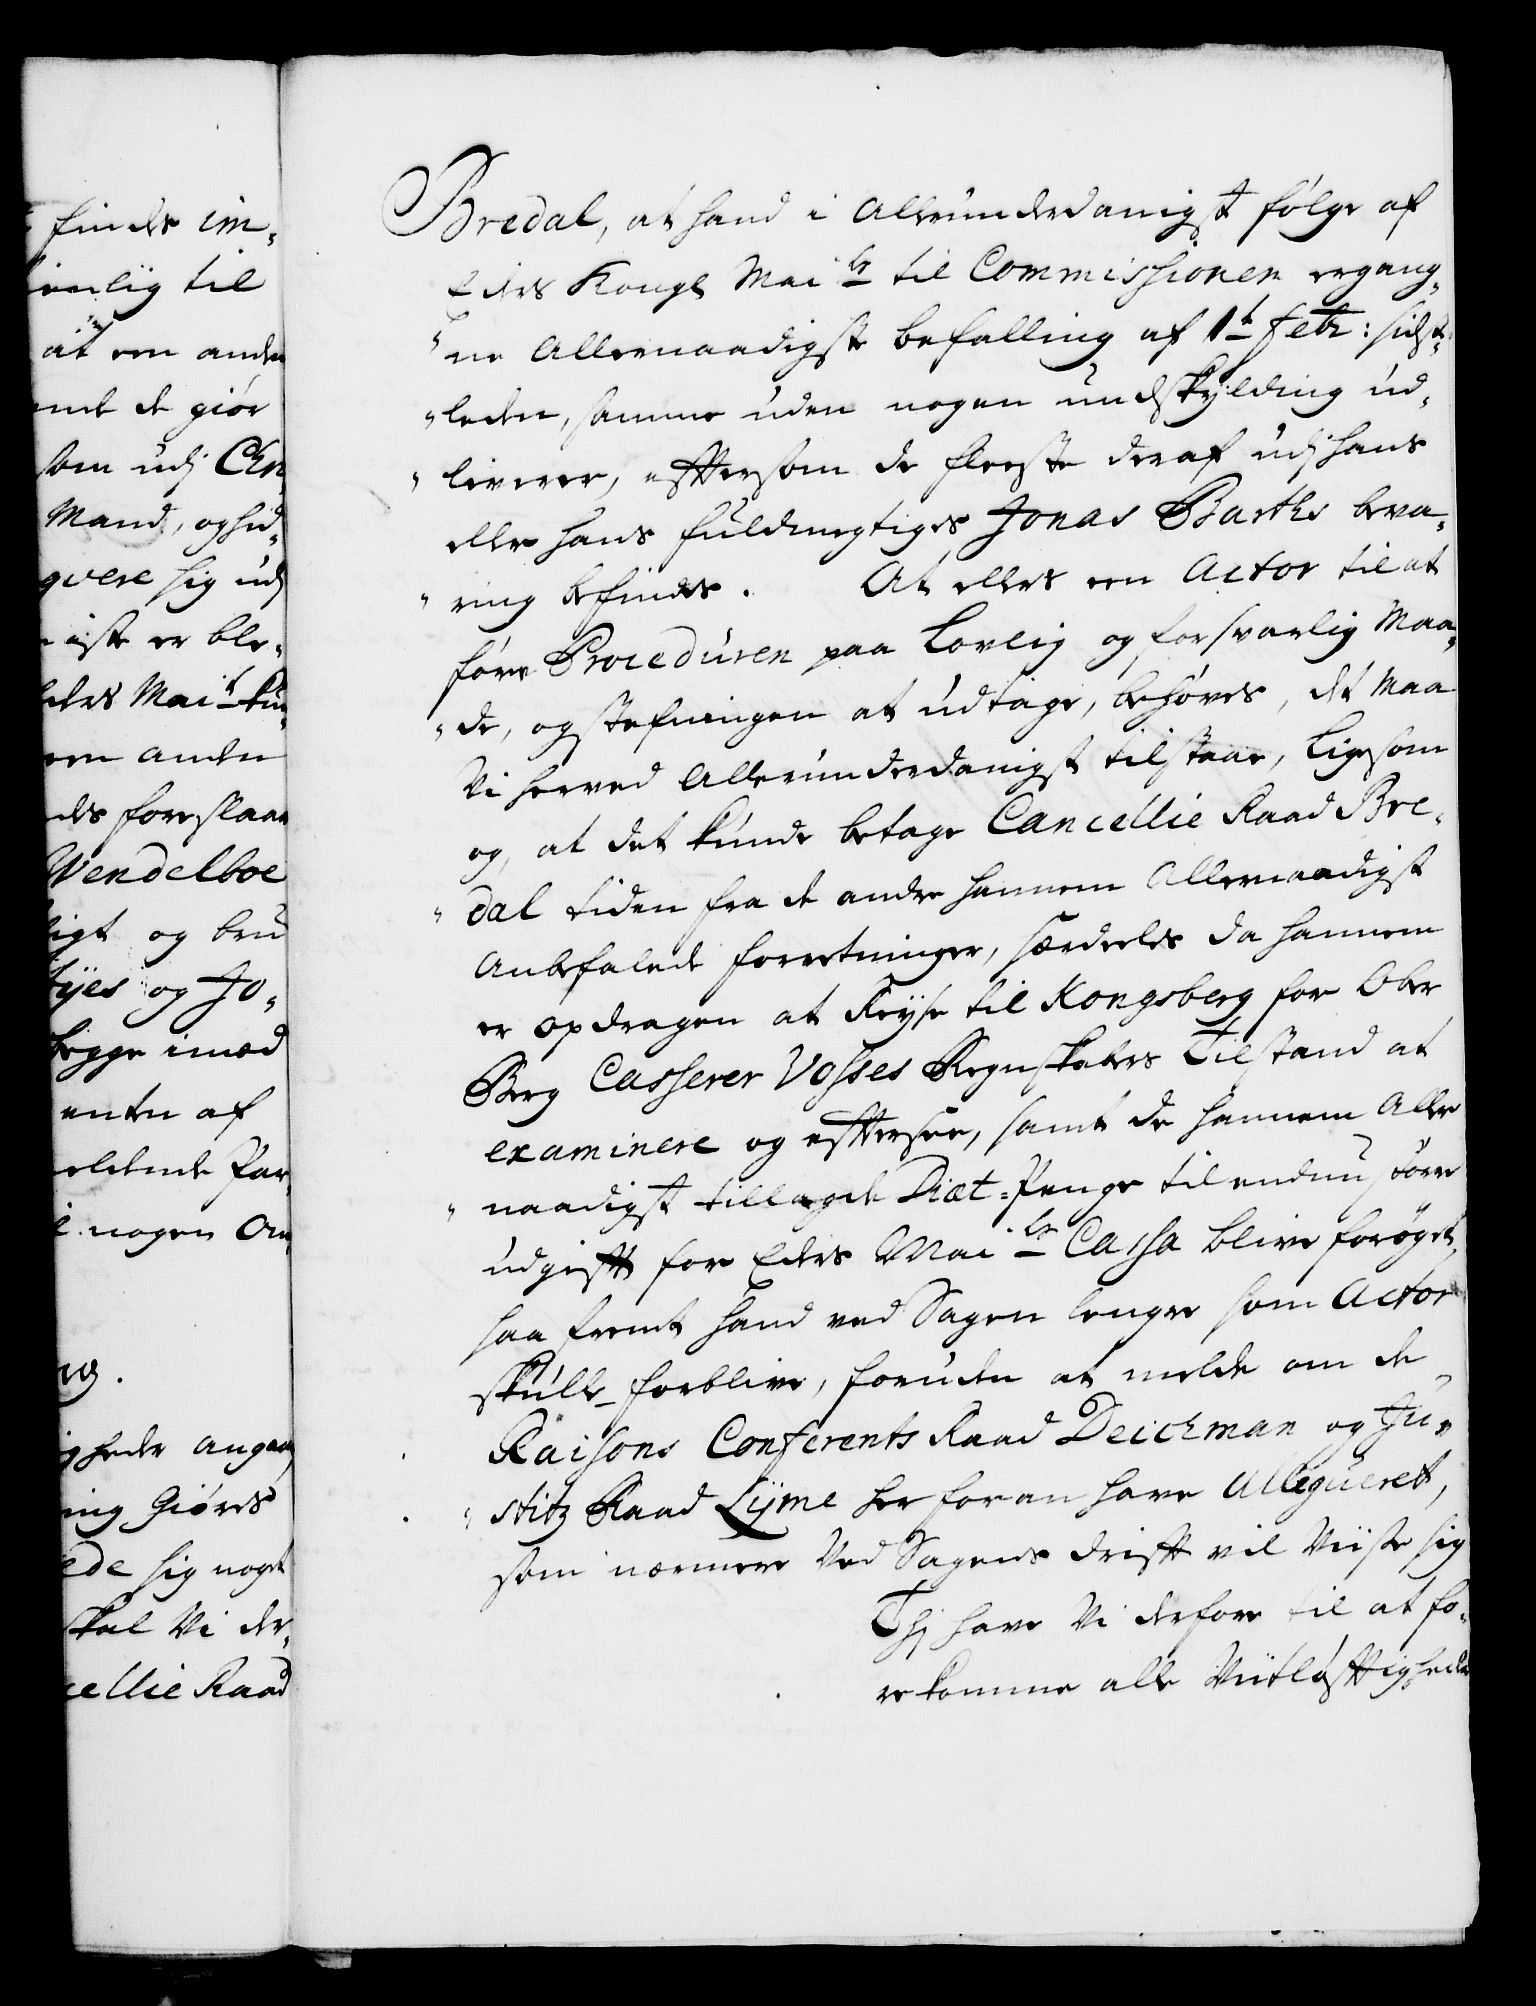 findes im-
ienlig til
at een anden
ende de giør
som udj Chri
Mand, og hid-
qvere sig udj
iste er ble-
Eders Mai.t kun-
een anden
des foreslaae
Wendelboe
ligt og bru
Tyes og Jo-
begge imod
enten af
meldende Par-
i nogen Om-
ng.
igheder angaae
ning Giøres
ede sig noget
skal Vi der-
cellie Raad
Bredal, at hand i Allerunderdanigst følge af
Eders Kongl Mai.ts til Commissionen ergang-
"ne Allernaadigste befalling af 1.t Febr: sidst-
"leden, samme uden nogen undskylding ud-
"liverer, efftersom de fleeste deraf udj hans
eller hans fuldmegtiges Jonas Barths beva-
"ring befindes. At ellers een Actor til at
føre Proceduren paa Lovlig og forsvarlig Maa-
"de, og stefningen at udtage, behøves, det maa
Vi herved Allerunderdanigst tilstaae, ligesom
og, at det kunde betage Cancellie Raad Bre-
"dal tiden fra de andre hannem Allernaadigst
Anbefalede forretninger, særdeeles da hannem
er opdragen at Reyse til Kongsberg for Ober
Berg Casserer Vosses Regnskabers Tilstand at
examinere og efftersee, samt de hannem Aller
"naadigst tillagde Diæt-Penge til endnu større
udgifft for Eders Mai.ts Cassa blive forøget,
saa fremt hand ved Sagen lengre som Actor
skulle forblive, foruden at melde om de
Raisons Conferents Raad Deichman og Ju-
"stitz Raad Lyme her foran have Allegueret,
som nærmere Ved Sagens drifft vil Viise sig
Thj have Vi derfore til at fo-
rekomme alle Viitløfftigheder